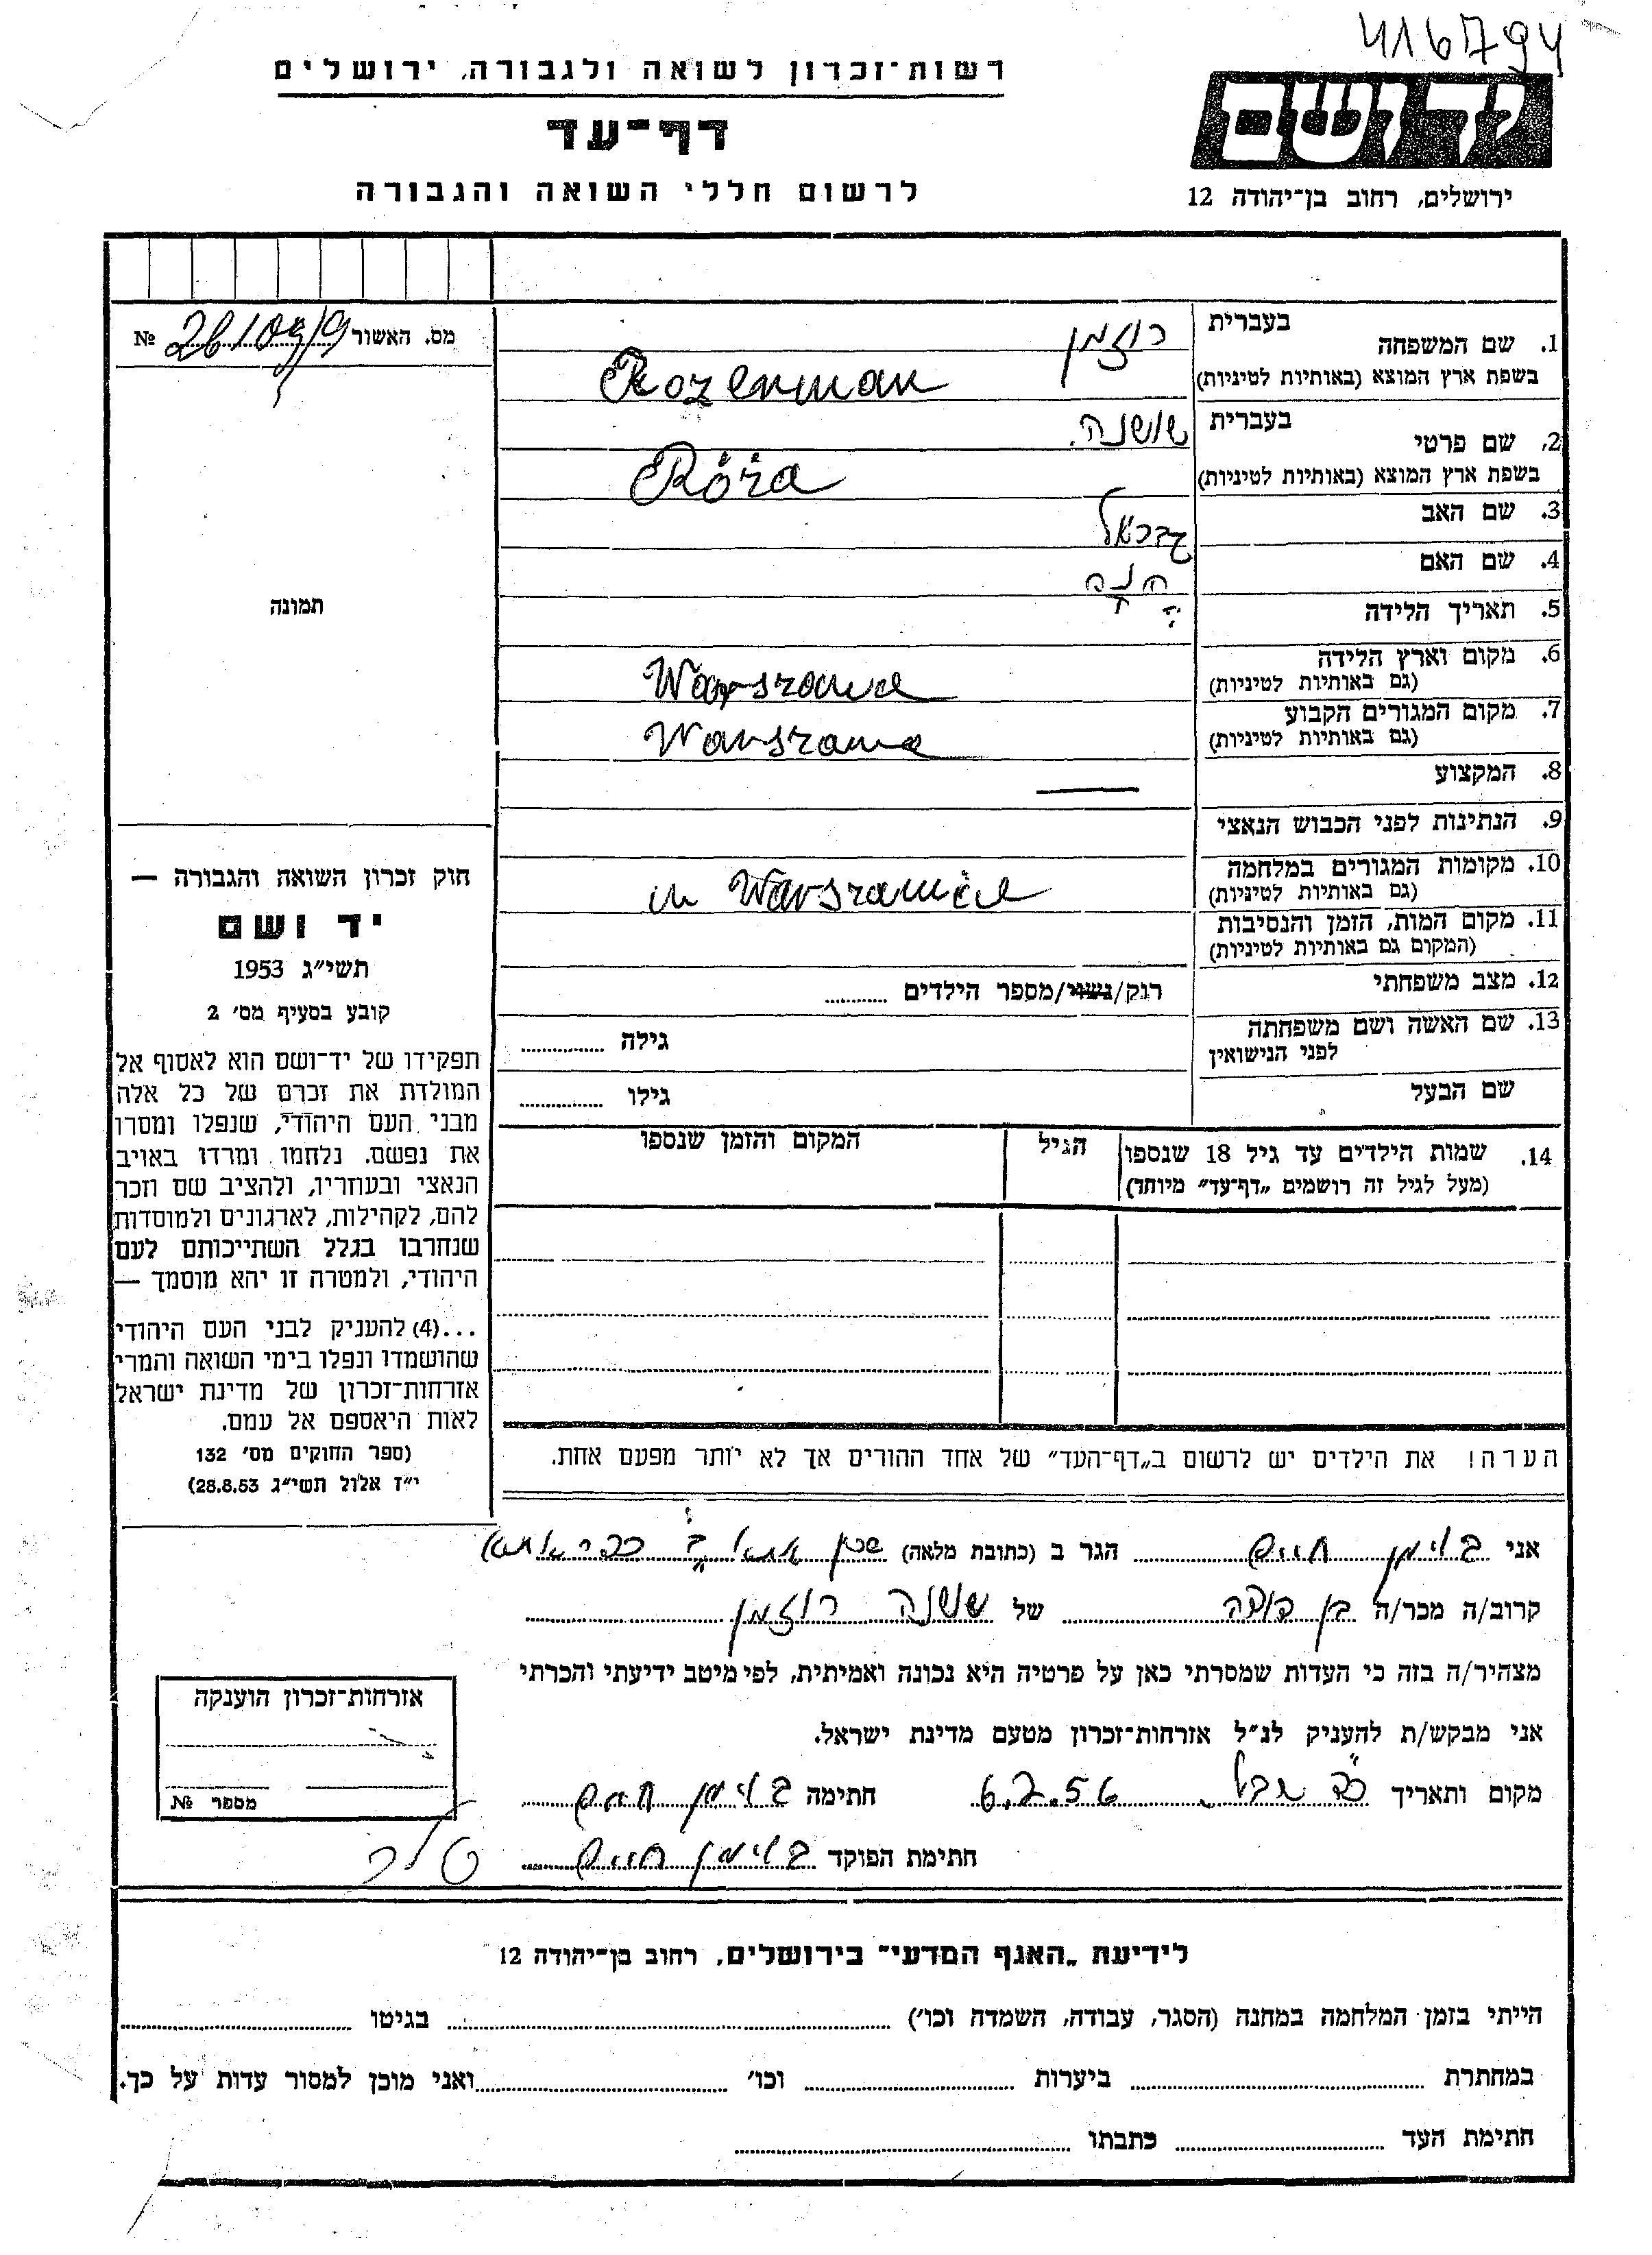 416794
רשות־זכרון לשואה ולגבורה, ירושלים
דף־עד
לרשום חללי השואה והגבורה
יד ושם
ירושלים, רחוב בן־יהודה 12
מס. האשור №
1. שם המשפחה
בעברית
רוזמן
בשפת ארץ המוצא (באותיות לטיניות)
Rozenman
2. שם פרטי
בעברית
שושנה
בשפת ארץ המוצא (באותיות לטיניות)
Róża
3. שם האב
גבריאל
4. שם האם
חנה
5. תאריך הלידה
?
6. מקום וארץ הלידה
(גם באותיות לטיניות)
Warszawa
7. מקום המגורים הקבוע
(גם באותיות לטיניות)
Warszawa
8. המקצוע
9. הנתינות לפני הכבוש הנאצי
10. מקומות המגורים במלחמה
(גם באותיות לטיניות)
Warszawie
11. מקום המות, הזמן והנסיבות
(המקום גם באותיות לטיניות)
12. מצב משפחתי
רוק/נשוי/מספר הילדים
13. שם האשה ושם משפחתה
לפני הנישואין
גילה
שם הבעל
גילו
14. שמות הילדים עד גיל 18 שנספו
(מעל לגיל זה רושמים „דף־עד” מיוחד)
הגיל
המקום והזמן שנספו
תמונה
חוק זכרון השואה והגבורה —
יד ושם
תשי״ג 1953
קובע בסעיף מס׳ 2
תפקידו של יד־ושם הוא לאסוף אל
המולדת את זכרם של כל אלה
מבני העם היהודי, שנפלו ומסרו
את נפשם. נלחמו ומרדו באויב
הנאצי ובעוזריו, ולהציב שם וזכר
להם, לקהילות, לארגונים ולמוסדות
שנחרבו בגלל השתייכותם לעם
היהודי, ולמטרה זו יהא מוסמך —
...(4) להעניק לבני העם היהודי
שהושמדו ונפלו בימי השואה והמרי
אזרחות־זכרון של מדינת ישראל
לאות היאספם אל עמם.
(ספר החוקים מס׳ 132
י״ז אלול תשי״ג 28.8.53)
הערה! את הילדים יש לרשום ב„דף־העד” של אחד ההורים אך לא יותר מפעם אחת.
אני בוימן חיים הגר ב (כתובת מלאה) שכון אתא ב׳ כפר אתא
קרוב/ה מכר/ה בן דודה של שושנה רוזמן
מצהיר/ה בזה כי העדות שמסרתי כאן על פרטיה היא נכונה ואמיתית, לפי מיטב ידיעתי והכרתי
אני מבקש/ת להעניק לנ״ל אזרחות־זכרון מטעם מדינת ישראל.
מקום ותאריך 6.2.56 חתימה בוימן חיים
חתימת הפוקד בוימן חיים
אזרחות־זכרון הוענקה
מספר №
לידיעת „האגף המדעי” בירושלים, רחוב בן־יהודה 12
הייתי בזמן המלחמה במחנה (הסגר, עבודה, השמדה וכו׳) בגיטו
במחתרת ביערות וכו׳ ואני מוכן למסור עדות על כך.
חתימת העד כתבתו